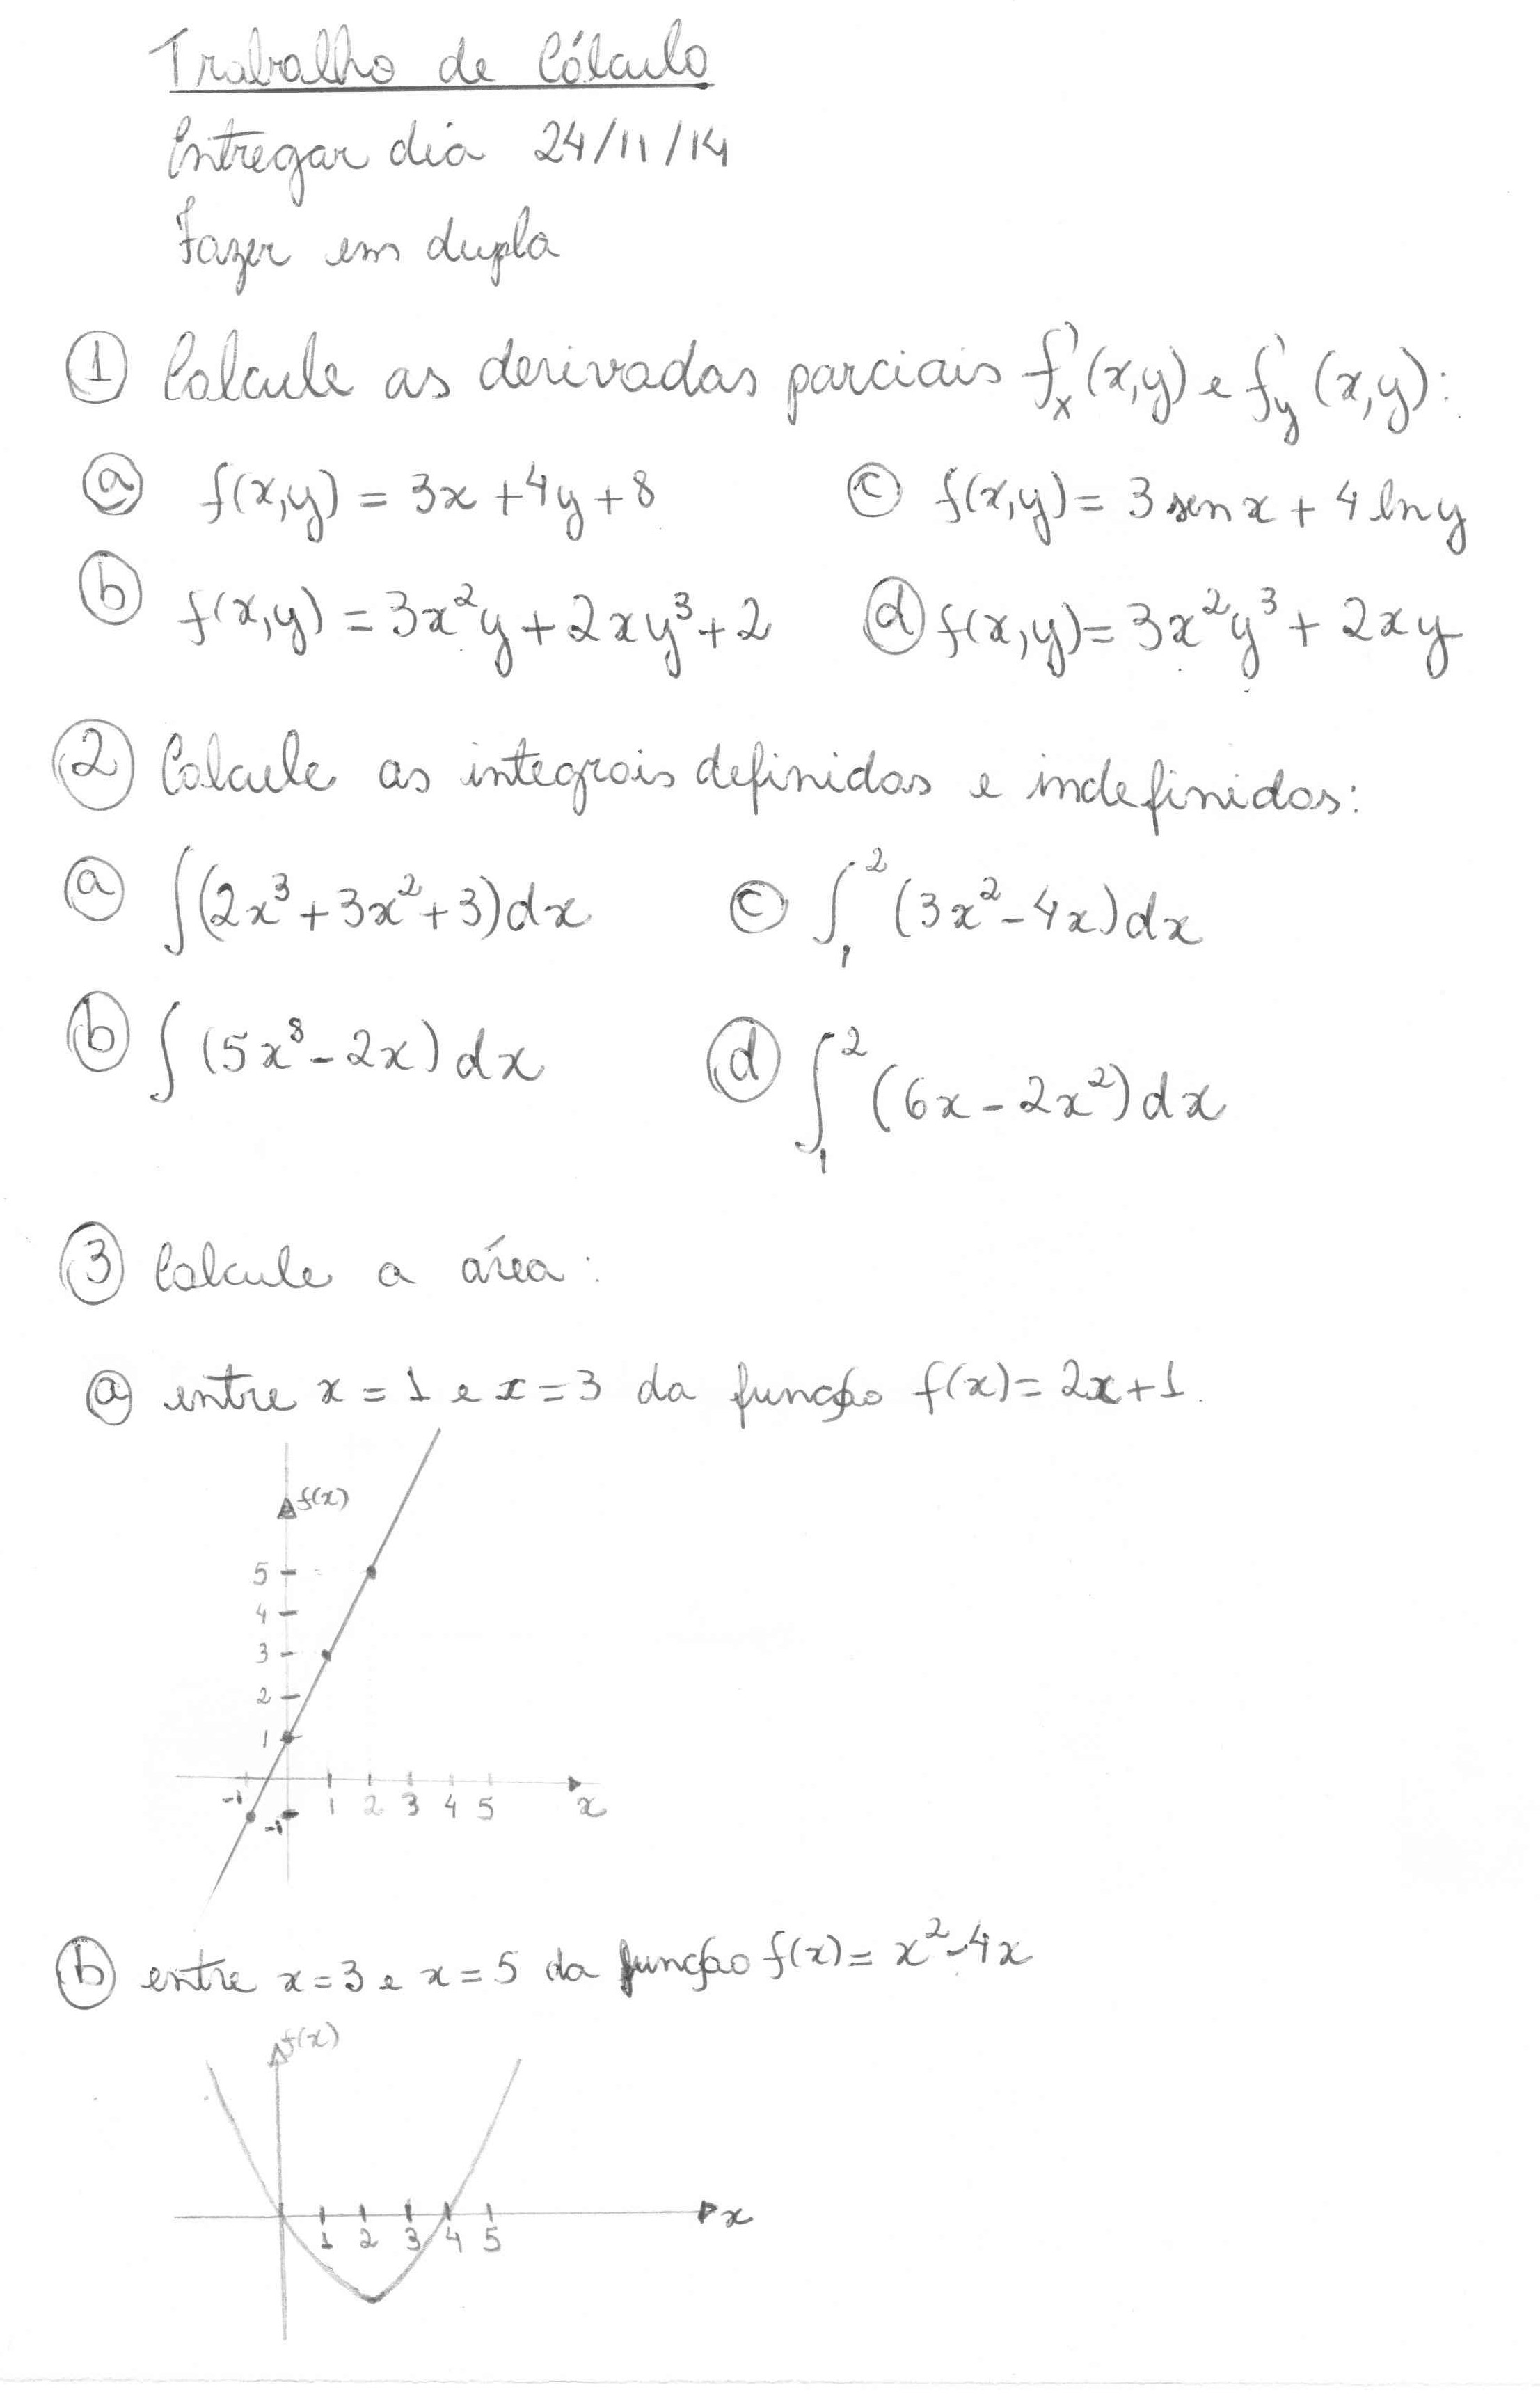 Trabalho de Cálculo
Entregar dia 24/11/14
Fazer em dupla
① Calcule as derivadas parciais f'ₓ(x,y) e f'ᵧ(x,y):
ⓐ f(x,y) = 3x + 4y + 8 ⓒ f(x,y) = 3 sen x + 4 ln y
ⓑ f(x,y) = 3x²y + 2xy³ + 2 ⓓ f(x,y) = 3x²y³ + 2xy
② Calcule as integrais definidas e indefinidas:
ⓐ ∫(2x³ + 3x² + 3)dx ⓒ ∫₁² (3x² - 4x)dx
ⓑ ∫(5x⁸ - 2x)dx ⓓ ∫₁² (6x - 2x²)dx
③ Calcule a área:
ⓐ entre x = 1 e x = 3 da função f(x) = 2x + 1.
f(x)
5
4
3
2
1
-1 1 2 3 4 5 x
-1
ⓑ entre x = 3 e x = 5 da função f(x) = x² - 4x
f(x)
x
1 2 3 4 5